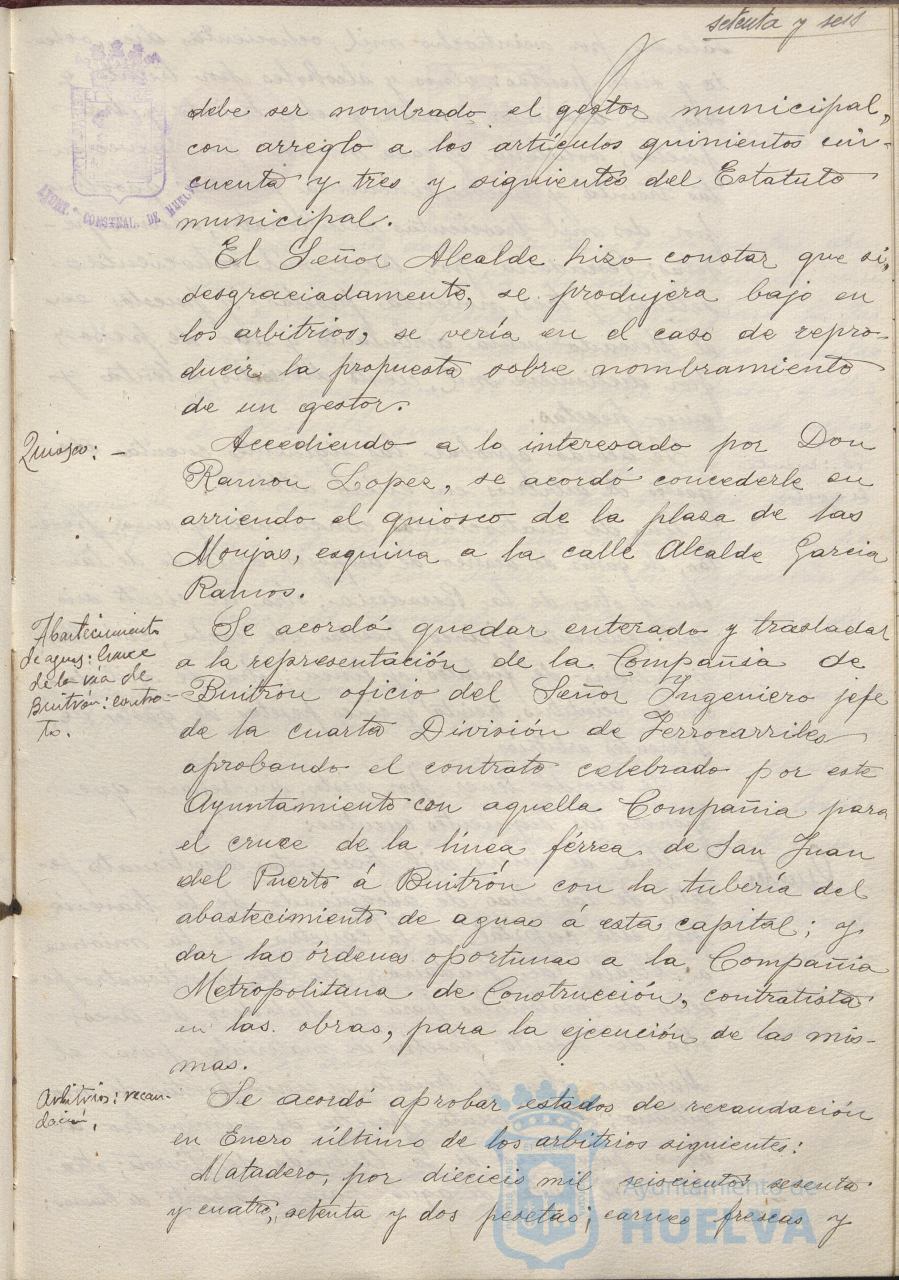 setenta y seis
AYUNT.º CONSTNAL. DE HUELVA
debe ser nombrado el gestor municipal,
con arreglo a los artículos quinientos cin-
cuenta y tres y siguientes del Estatuto
municipal.
El Señor Alcalde hizo constar que si,
desgraciadamente, se produjera bajo en
los arbitrios, se vería en el caso de repro-
ducir la propuesta sobre nombramiento
de un gestor.
Quiosco: -
Accediendo a lo interesado por Don
Ramon Lopez, se acordó concederle en
arriendo el quiosco de la plaza de las
Monjas, esquina a la calle Alcalde Garcia
Ramos.
Abastecimiento
de aguas: Cruce
de la vía de
Buitrón: contra-
to.
Se acordó quedar enterado y trasladar
a la representación de la Compañia de
Buitron oficio del Señor Ingeniero jefe
de la cuarta División de Ferrocarriles
aprobando el contrato celebrado por este
Ayuntamiento con aquella Compañia para
el cruce de la línea férrea de San Juan
del Puerto á Buitrón con la tubería del
abastecimiento de aguas á esta capital; y
dar las órdenes oportunas a la Compañia
Metropolitana de Construcción, contratista
en las obras, para la ejecución de las mis-
mas.
Arbitrios: recau-
dación.
Se acordó aprobar estados de recaudación
en Enero último de los arbitrios siguientes:
Matadero, por dieciseis mil seiscientos sesenta
y cuatro, setenta y dos pesetas; carnes frescas y
Ayuntamiento de
HUELVA